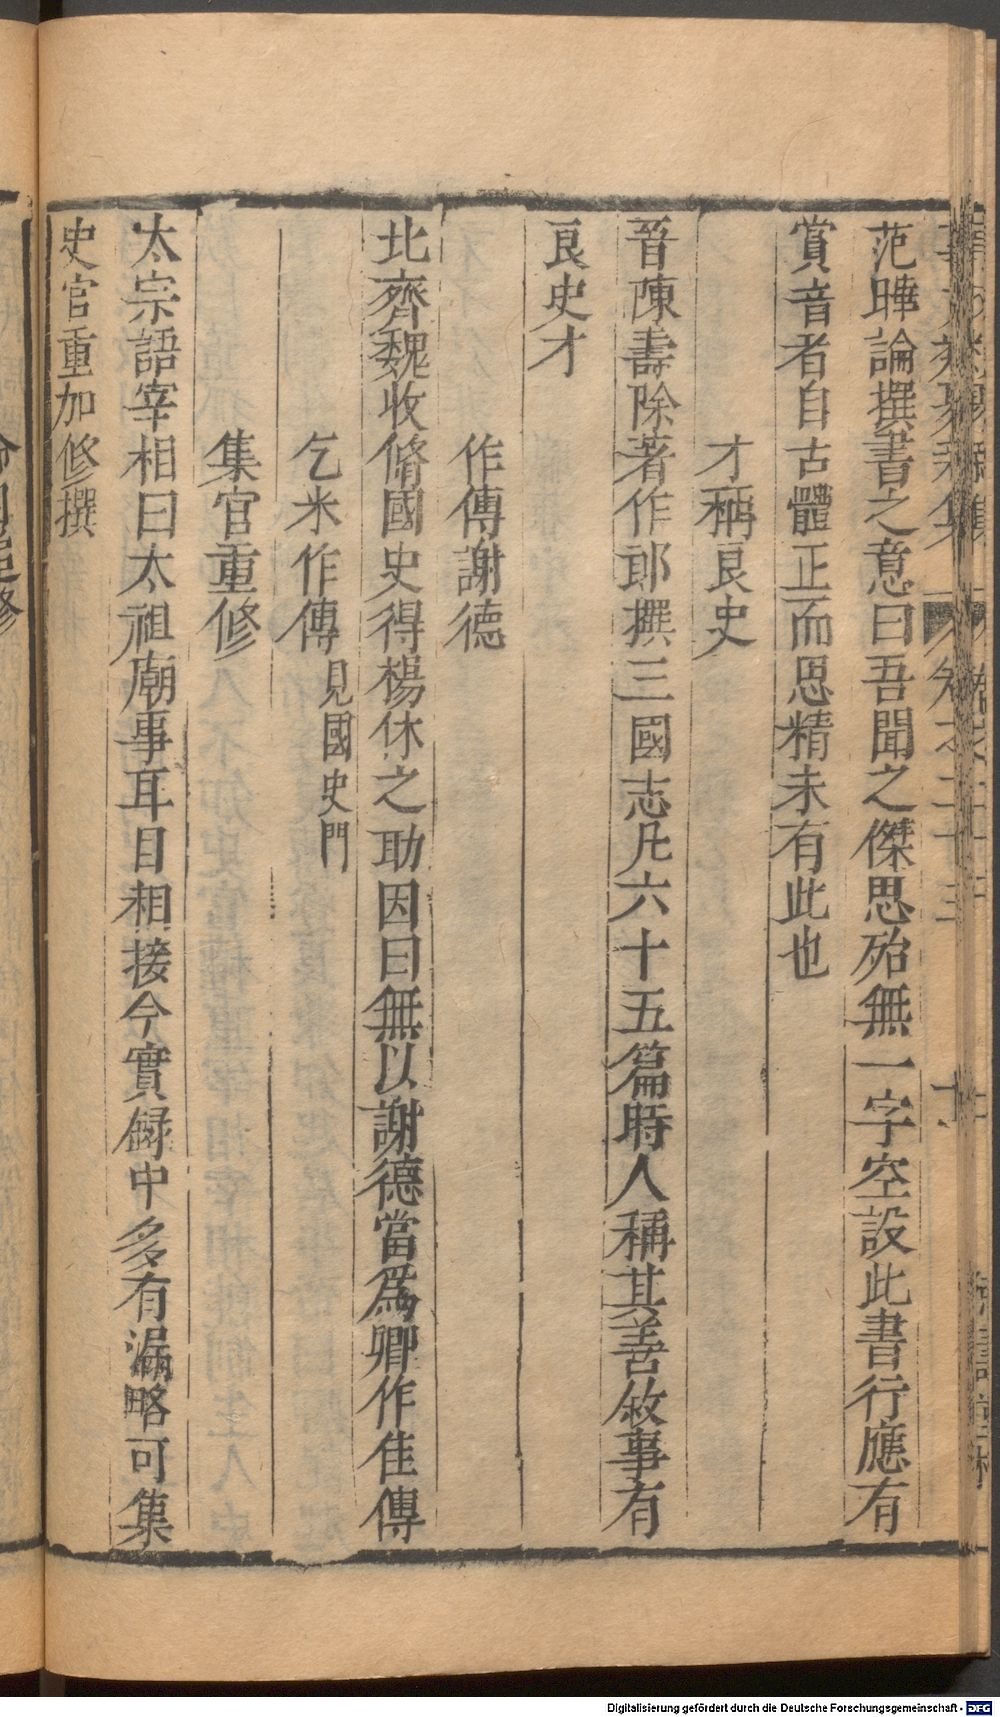 范曄論撰書之意曰吾聞之傑思殆無一字空設此書行應有
賞音者自古體正而思精未有此也
才稱良史
晉陳壽除著作郎撰三國志凡六十五篇時人稱其善敘事有
良史才
作傳謝德
北齊魏收脩國史得楊休之助因曰無以謝德當爲卿作佳傳
乞米作傳 見國史門
集官重修
太宗語宰相曰太祖廟事耳目相接今實録中多有漏略可集
史官重加修撰
Digitalisierung gefördert durch die Deutsche Forschungsgemeinschaft - DFG